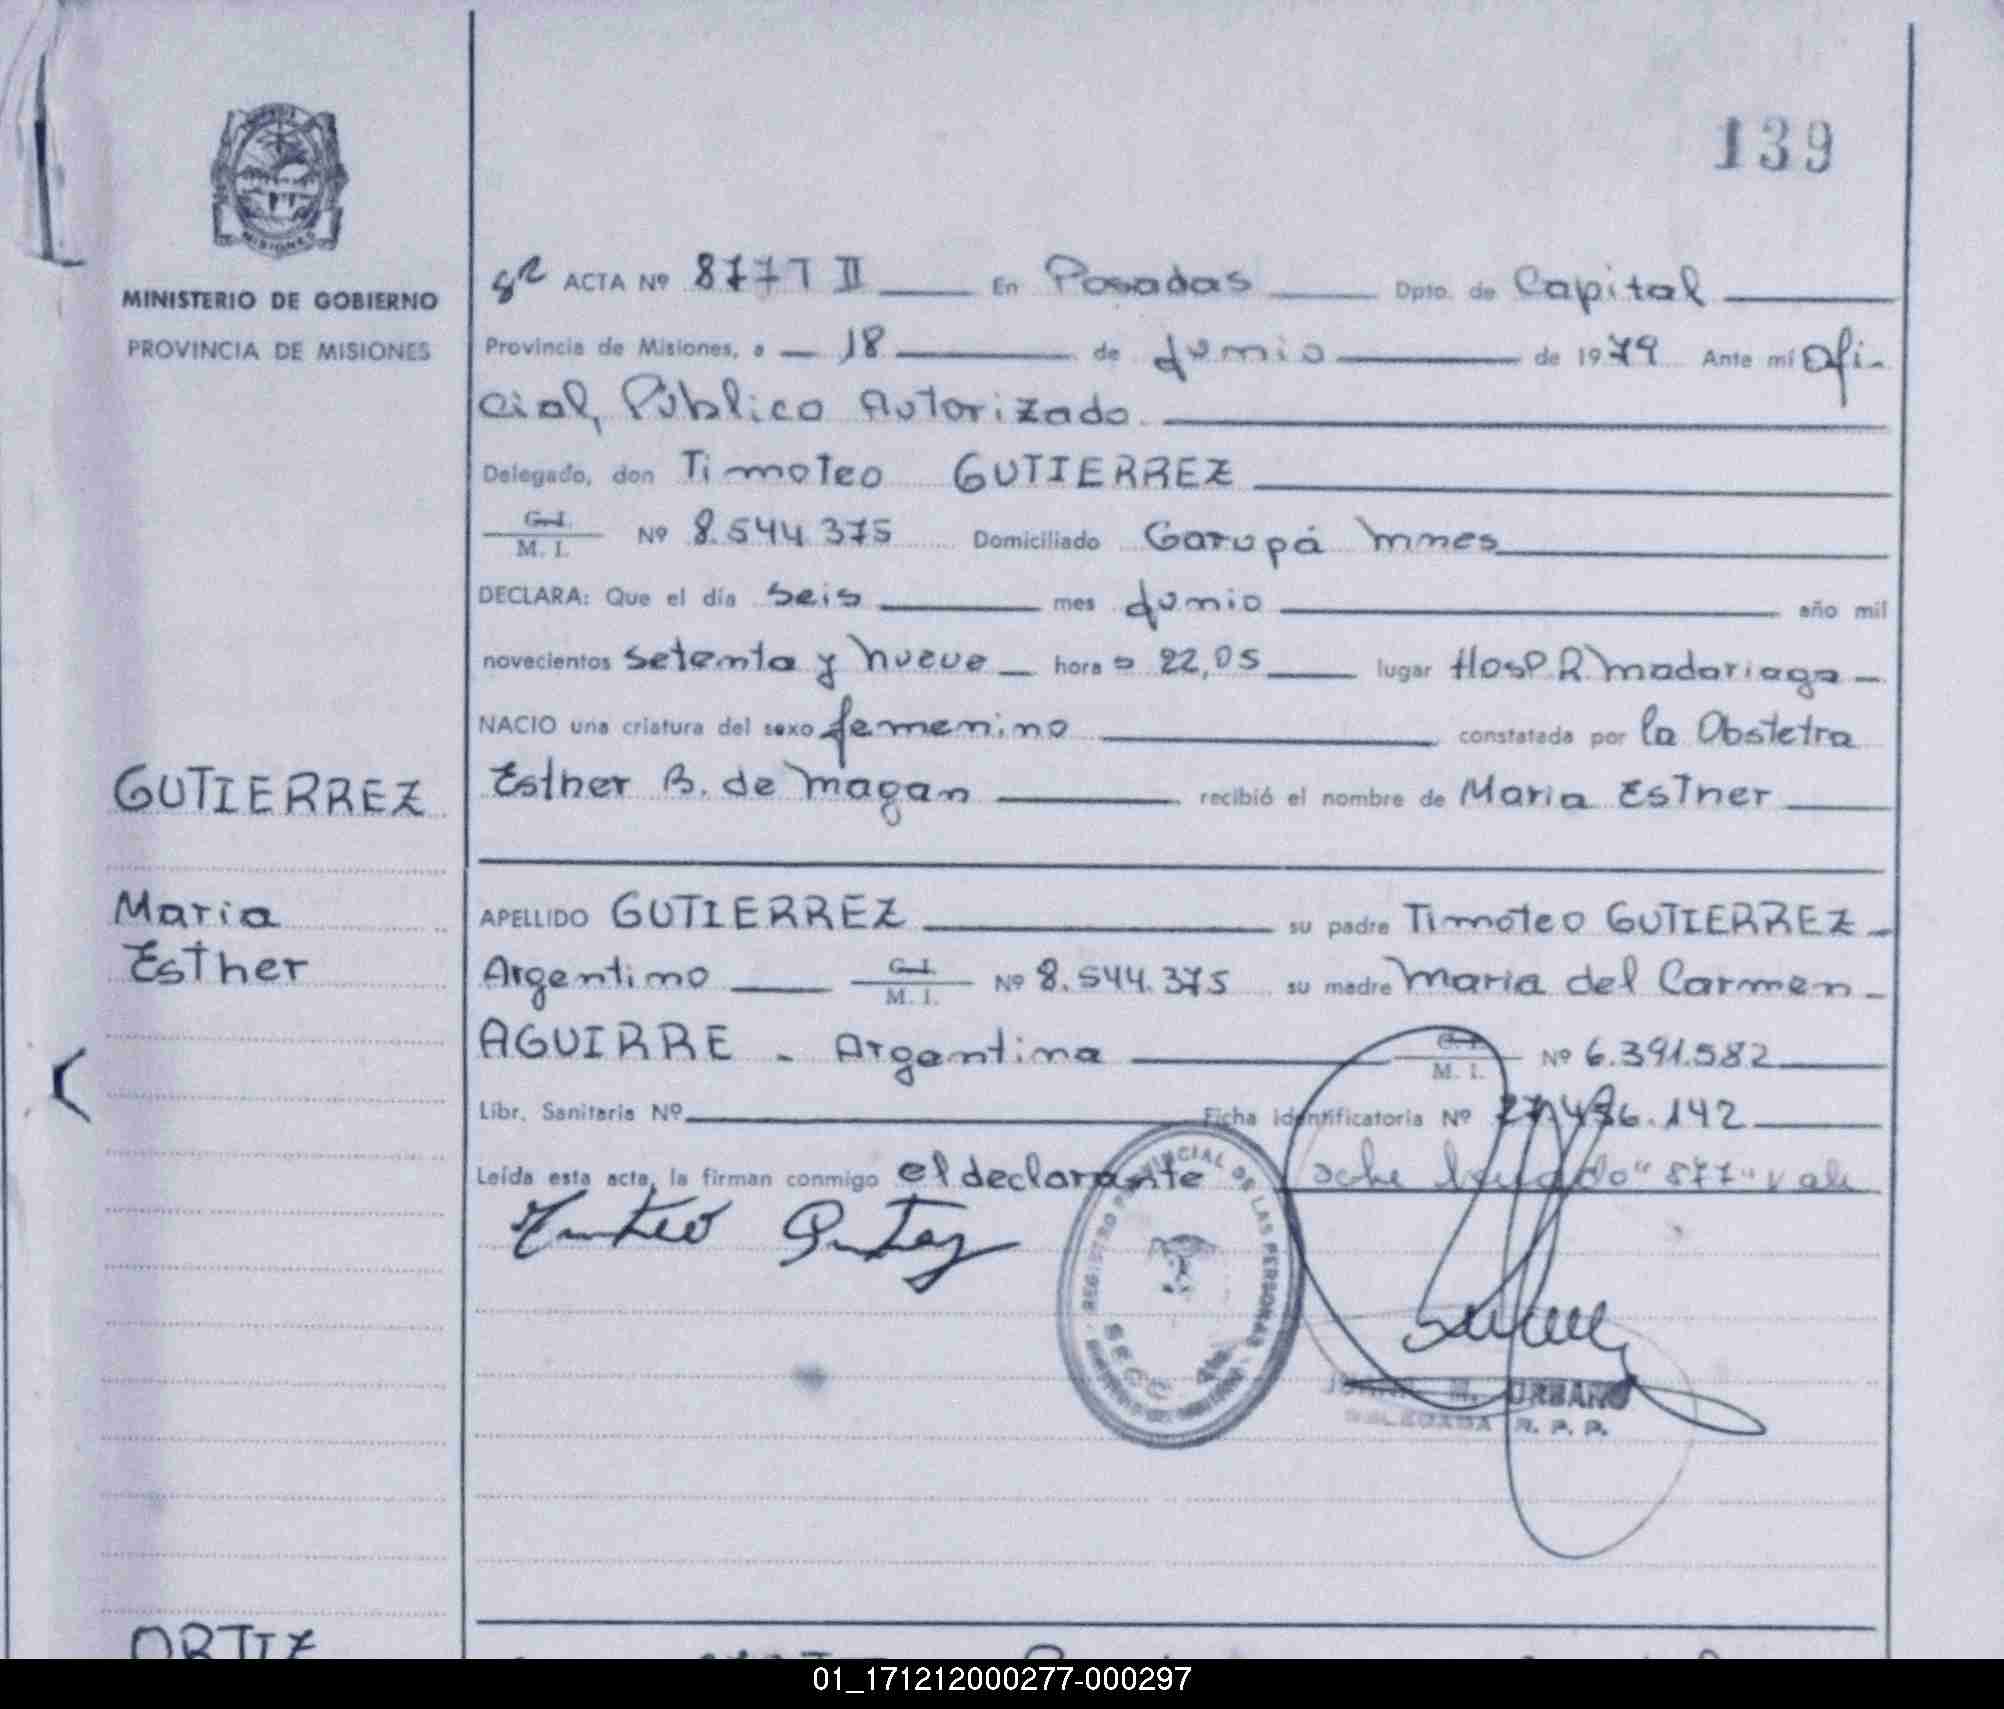 139
MISIONES
MINISTERIO DE GOBIERNO
PROVINCIA DE MISIONES
ACTA Nº 877 T II En Posadas Dpto. de Capital
Provincia de Misiones, a 18 de Junio de 1979 Ante mí Ofi-
cial, Público Autorizado
Delegado, don Timoteo GUTIERREZ
C. I.
M. I. Nº 8.544.375 Domiciliado Garupá Mnes
DECLARA: Que el día seis mes Junio año mil
novecientos setenta y nueve hora 22,05 lugar Hosp. R. Madariaga
NACIO una criatura del sexo femenino constatada por la Obstetra
Esther B. de Magan recibió el nombre de Maria Esther
GUTIERREZ
Maria
Esther
APELLIDO GUTIERREZ su padre Timoteo GUTIERREZ
Argentino C. I.
M. I. Nº 8.544.375 su madre Maria del Carmen
AGUIRRE - Argentina C. I.
M. I. Nº 6.391.582
Libr. Sanitaria Nº Ficha Identificatoria Nº 27.486.142
Leída esta acta, la firman conmigo el declarante "877" vale
REGISTRO PROVINCIAL DE LAS PERSONAS
M. URBANO
DELEGADA R. P. P.
ORTIZ
01_171212000277-000297